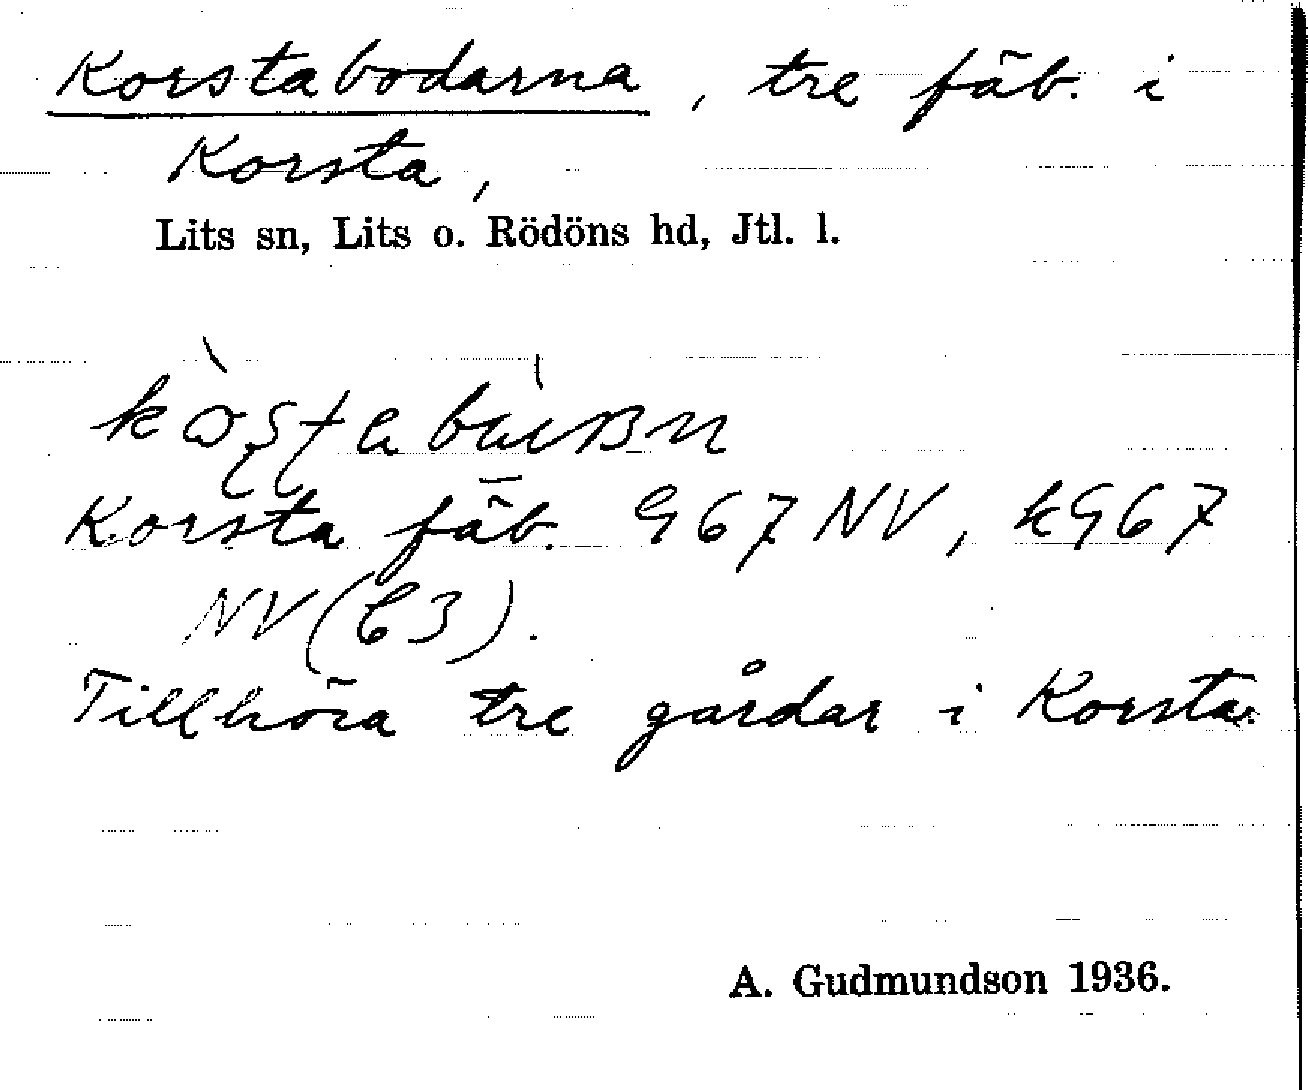 Korstabodarna, tre fäb. i
Korsta,
Lits sn, Lits o. Rödöns hd, Jtl. l.
Korsta fäb. G67 NV, kG67
NV (C3).
Tillhöra tre gårdar i Korsta.
A. Gudmundson 1936.